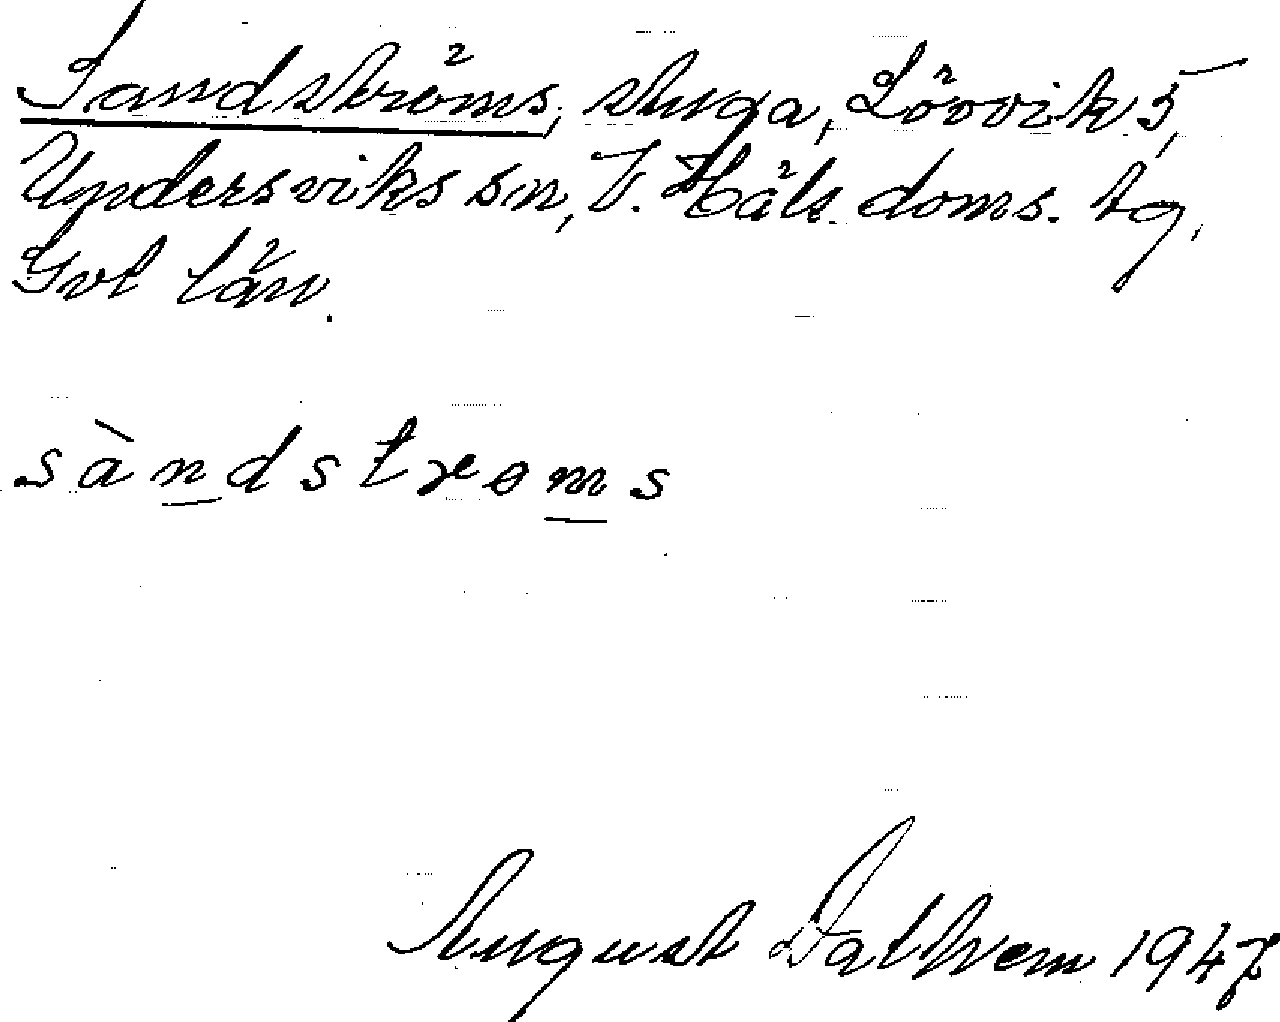 Sandströms, stuga, Lörvik 5,
Undersviks sn, V. Häls. doms. tg,
Gvl län.
sàndstrɵms
August Dathrem 1947